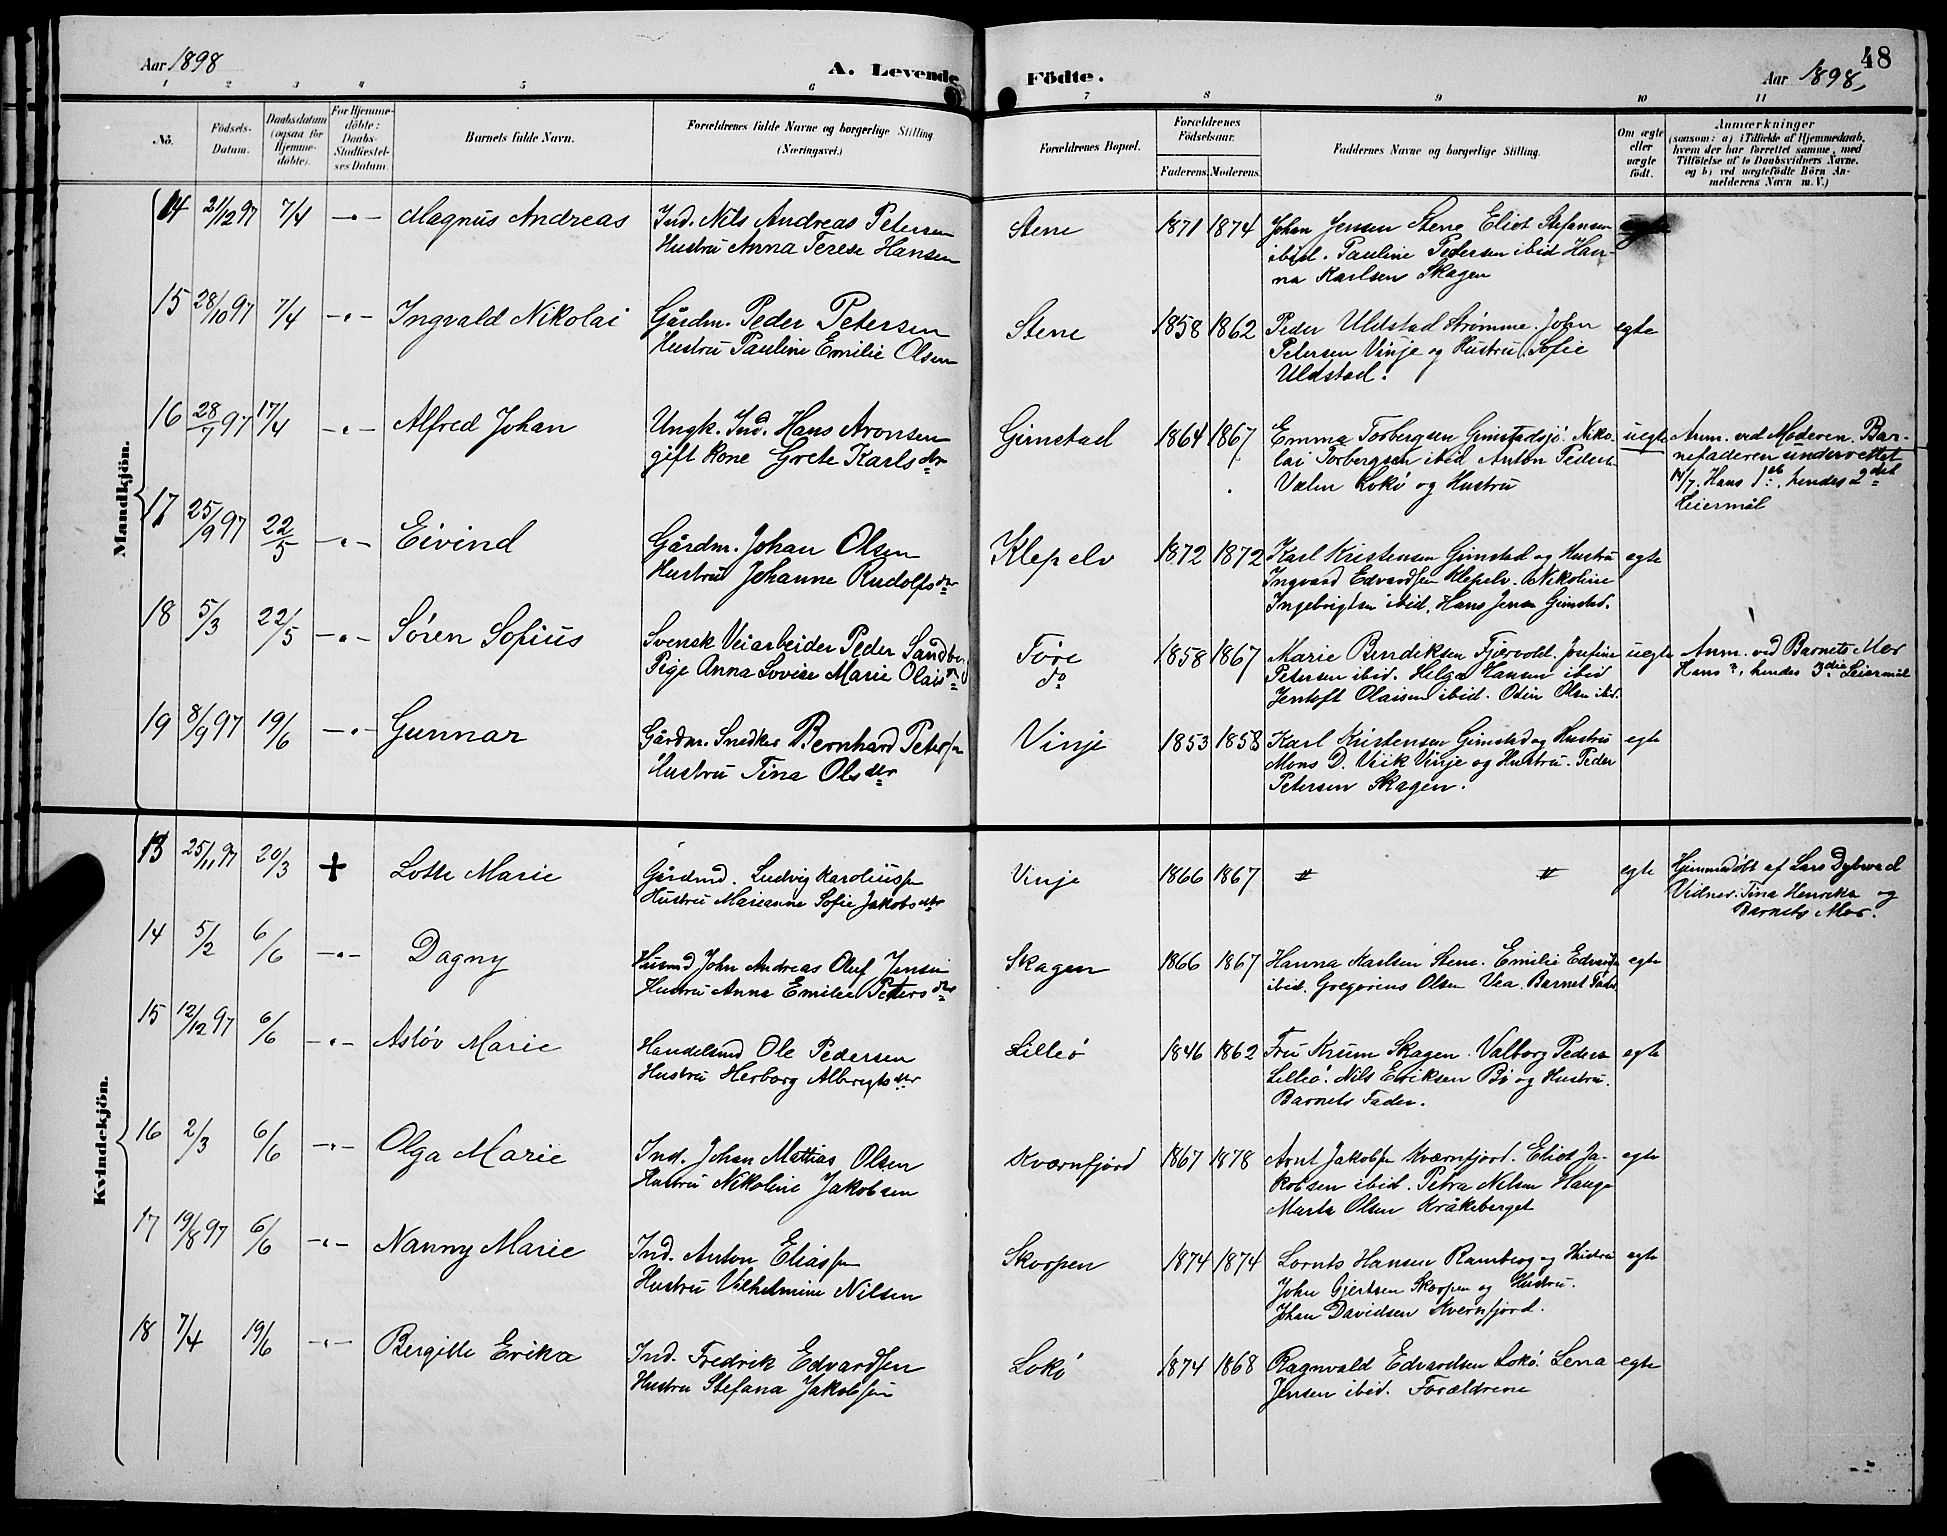 Aar 1898
A. Levende Födte.
Aar 1898,
48
1 2 3 4 5 6 7 8 9 10 11
No.
Födsels-Datum.
Daabsdatum (ogsaa for Hjemme-döbte).
For Hjemme-döbte: Daabs-Stadfæstel-ses Datum.
Barnets fulde Navn.
Forældrenes fulde Navne og borgerlige Stilling (Næringsvei.)
Forældrenes Bopæl.
Forældrenes Födselsaar.
Faderens. Moderens.
Faddernes Navne og borgerlige Stilling.
Om ægte eller uægte födt.
Anmærkninger
(saasom: a) i Tilfælde af Hjemmedaab,
hvem der har forrettet samme, med
Tilföielse af to Daabsvidners Navne,
og b) ved uægtefödte Börn An-
melderens Navn m. V.)
Mandkjön.
14 21/12 97 7/4 -"- Magnus Andreas
Ind. Nils Andreas Petersen
Hustru Anna Terese Hansen
Stene 1871 1874
Johan Jensen Stene Eliot Stefansen
ibid. Pauline Pedersen ibid Han-
na Karlsen Skagen
egte
15 28/10 97 7/4 -"- Ingvald Nikolai
Gårdm. Peder Petersen
Hustru Pauline Emilie Olsen
Stene 1858 1862
Peder Uldstad Strømme. John
Petersen Vinje og Hustru. Sofie
Uldstad.
egte
16 28/7 97 17/4 -"- Alfred Johan
Ungk. Ind. Hans Aronsen
gift Kone Grete Karlsdtr
Gimstad 1864 1867
Emma Torbergsen Gimstadsjø. Niko-
lai Torbergsen ibid Anton Peders.
Valen Lokø og Hustru
uegte
Anm. ved Moderen. Bar-
nefaderen underrettet
14/7. Hans 1ste, hendes 2det
Leiermål
17 25/9 97 22/5 -"- Eivind
Gårdm. Johan Olsen
Hustru Johanne Rudolfsdtr
Klepelv 1872 1872
Karl Kristensen Gimstad og Hustru
Ingvard Edvardsen Klepelv. Nikoline
Ingebrigtsen ibid. Hans Jensen Gimstad.
egte
18 5/3 22/5 -"- Søren Sofius
Svensk Veiarbeider Peder Sandber
Pige Anna Lovise Marie Olaisdtr
Føre
do
1858 1867
Marie Bendiksen Fjærvold. Josefine
Petersen ibid. Helga Hansen ibid
Jentoft Olaisen ibid. Odin Olsen ibid.
uegte
Anm. ved Barnets Mor
Hans ?, hendes 3die Leiermål
19 8/9 97 19/6 -"- Gunnar
Gårdm. Snedker Bernhard Petersen
Hustru Tina Olsdtr
Vinje 1853 1858
Karl Kristensen Gimstad og Hustru
Mons D. Viik Vinje og Hustru. Peder
Petersen Skagen.
egte
Kvindekjön.
13 25/11 97 20/3 + Lotte Marie
Gårdmd. Ludvig Karoliussen
Hustru Marianne Sofie Jakobsdtr
Vinje 1866 1867 " " egte
Hjemmedøbt af Lars Dybvad
Vidner. Tina Henrika og
Barnets Mor.
14 5/2 6/6 -"- Dagny
Husmd John Andreas Oluf Jensen
Hustru Anna Emilie Petersdtr
Skagen 1866 1867
Hanna Karlsen Stene. Emilie Edvards.
ibid. Gregorius Olsen Vea. Barnets Fader
egte
15 12/12 97 6/6 -"- Asløv Marie
Handelsmd Ole Pedersen
Hustru Herborg Albregtsdtr
Lilleø 1846 1862
Fru Krum Skagen. Valborg Peders.
Lilleø. Nils Eriksen Bø og Hustru.
Barnets Fader.
egte
16 2/3 6/6 -"- Olga Marie
Ind. Johan Mathias Olsen
Hustru Nikoline Jakobsen
Kværnfjord 1867 1878
Arnt Jakobsen Kværnfjord. Eliot Ja-
kobsen ibid. Petra Nilsen Hauge
Marta Olsen Kråkeberget
egte
17 19/8 97 6/6 -"- Nanny Marie
Ind. Anton Eliassen
Hustru Vilhelmine Nilsen
Skorpen 1874 1874
Lornts Hansen Ramberg og Hustru
John Gjertsen Skorpen og Hustru.
Johan Davidsen Kvernfjord.
egte
18 7/4 19/6 -"- Bergitte Erika
Ind. Fredrik Edvardsen
Hustru Stefana Jakobsen
Lokø 1874 1868
Ragnvald Edvardsen Lokø. Lena
Jensen ibid. Forældrene
egte